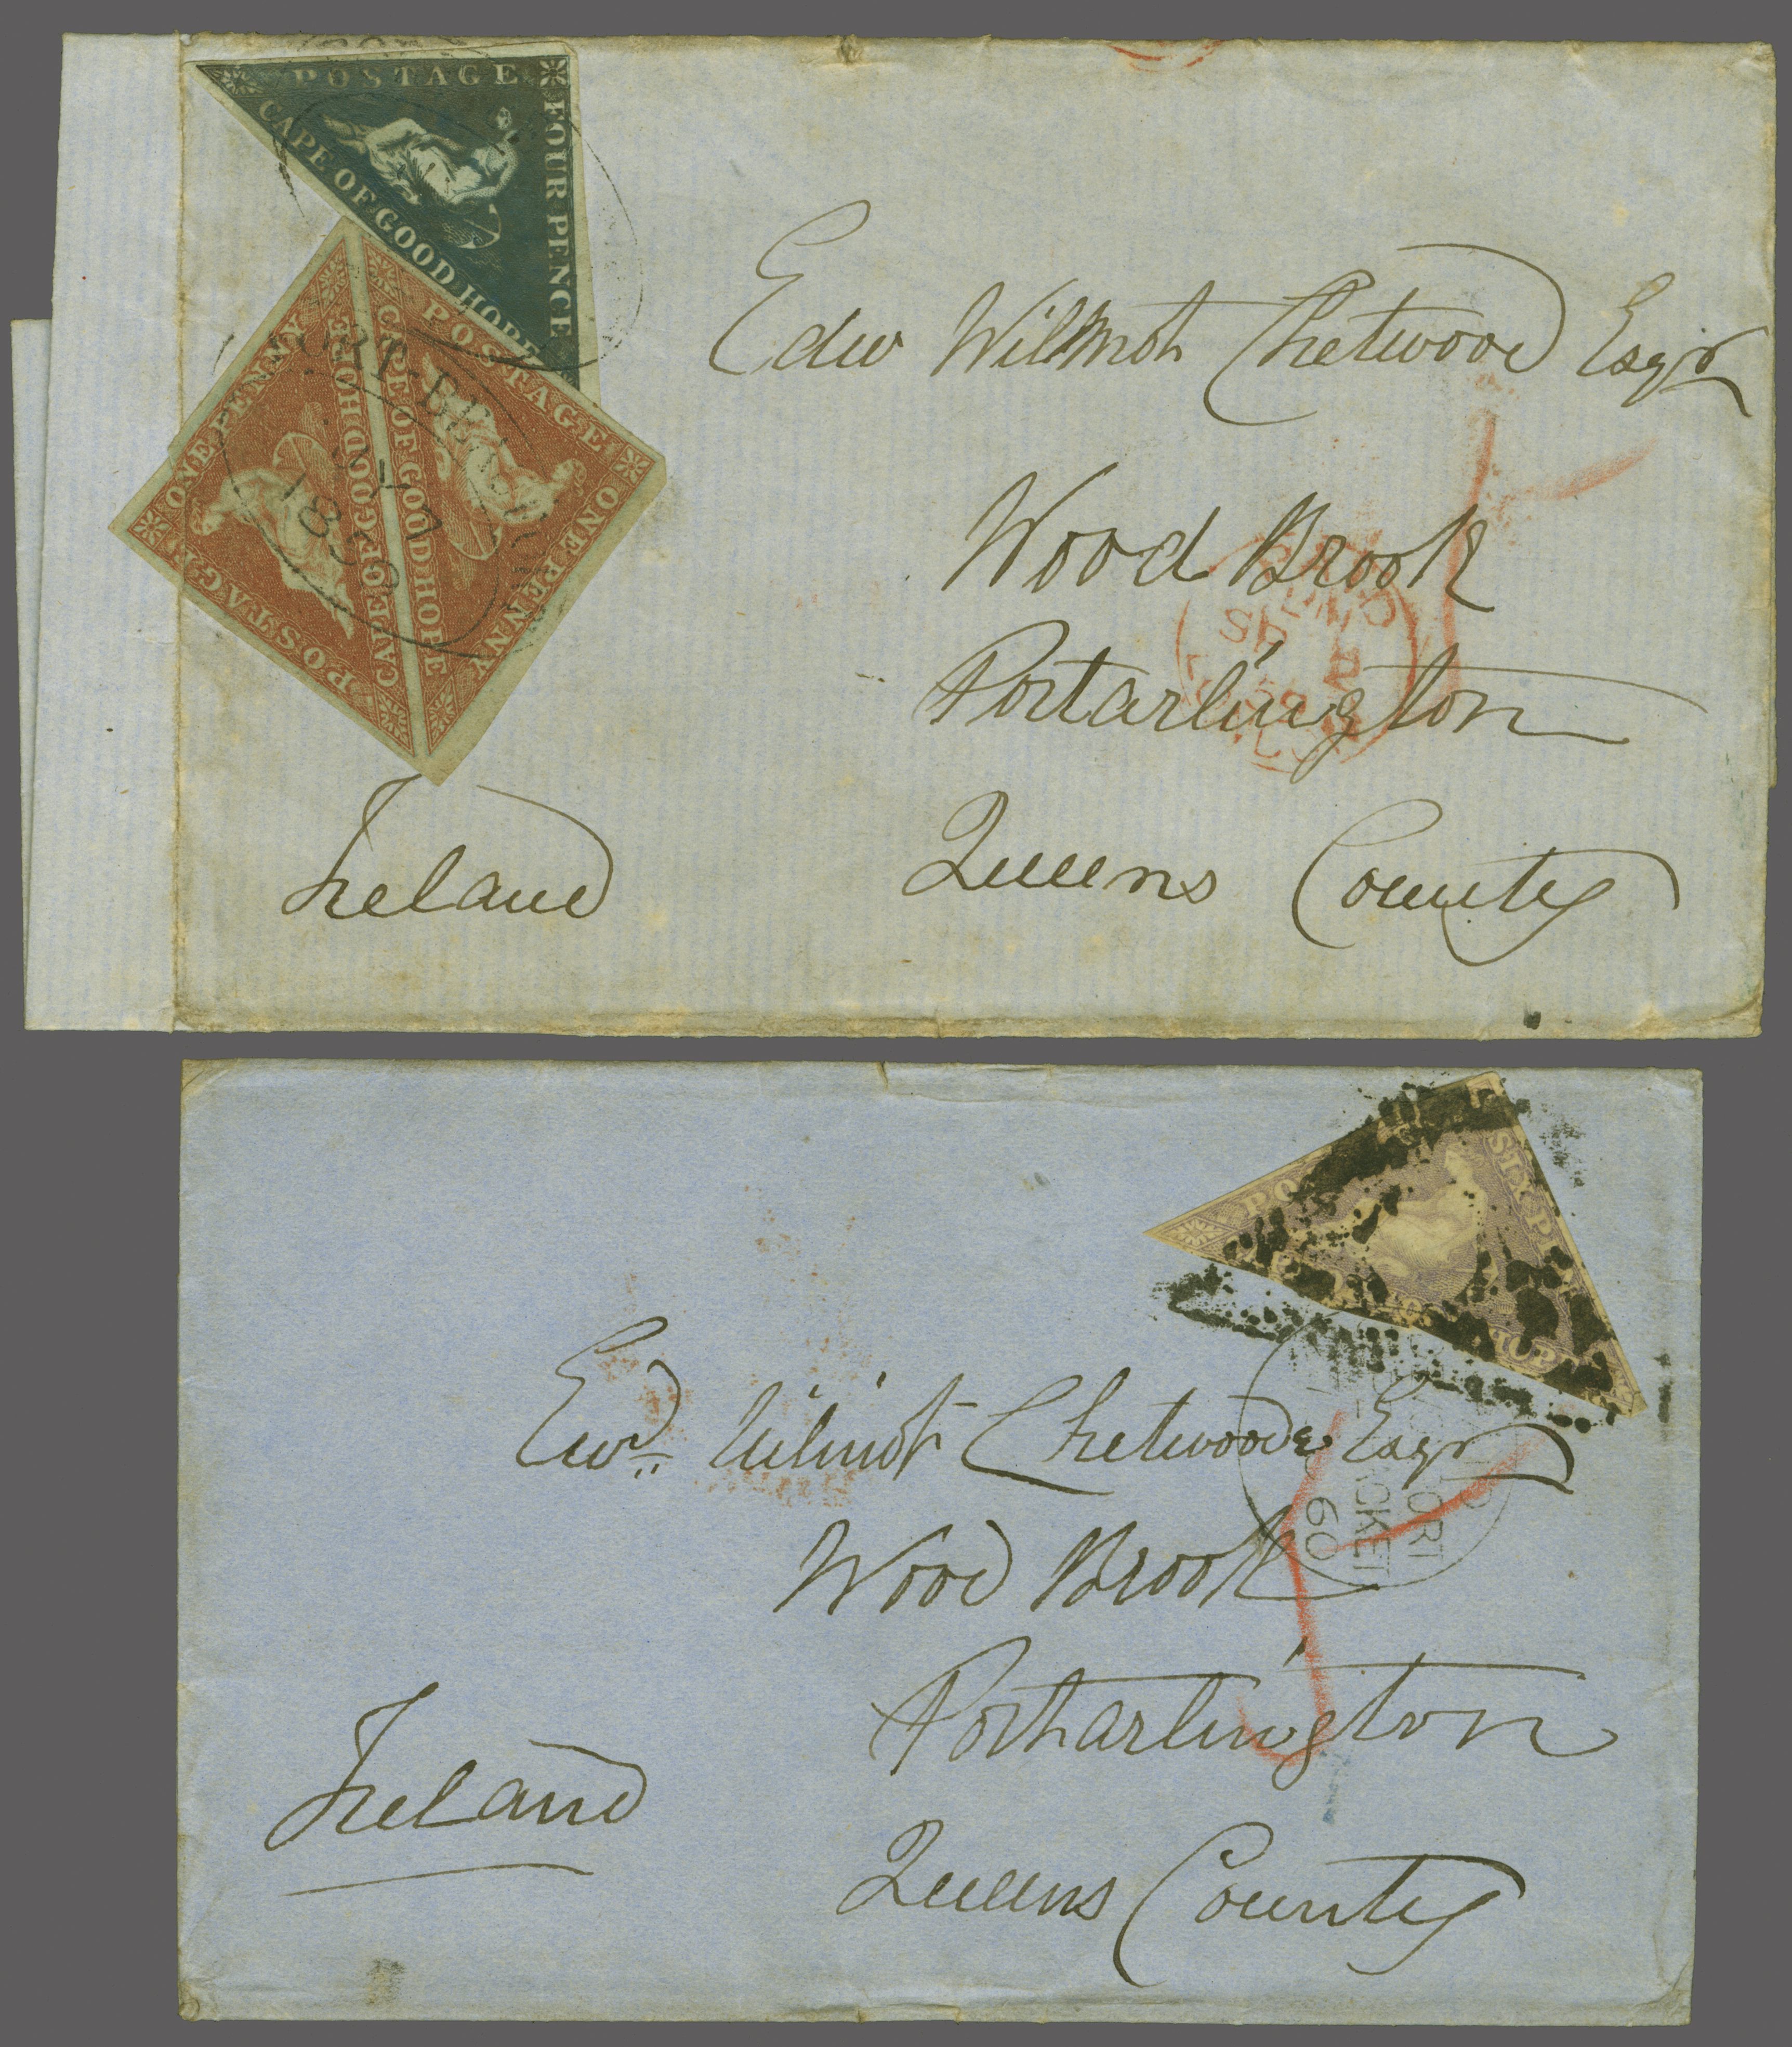 POSTAGE
FOUR PENCE
CAPE OF GOOD HOPE
ONE PENNY
POSTAGE
CAPE OF GOOD HOPE
CAPE OF GOOD HOPE
POSTAGE
ONE PENNY
Edw Wilmot Chetwood Esqr
Wood Brook
Portarlington
Queens County
Ireland
SIX
Edwd Wilmot Chetwoode Esqr
Wood Brook
Portarlington
Queens County
Ireland
60